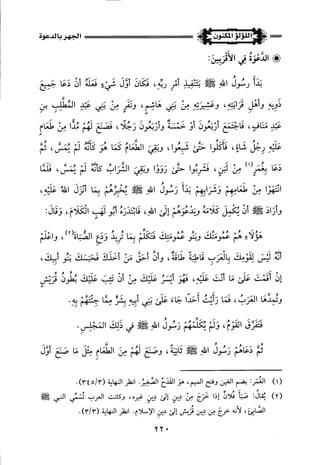 اللؤلؤ المكنون
الجهر بالدعوة
الدَّعْوَةُ فِي الْأَقْرَبِينَ:
بَدَأَ رَسُولُ اللهِ ﷺ بِتَنْفِيذِ أَمْرِ رَبِّهِ، فَكَانَ أَوَّلَ شَيْءٍ فَعَلَهُ أَنْ دَعَا جَمِيعَ
ذَوِيهِ وَأَهْلِ قَرَابَتِهِ، وَعَشِيرَتِهِ مِنْ بَنِي هَاشِمٍ، وَنَفَرٍ مِنْ بَنِي عَبْدِ الْمُطَّلِبِ بنِ
عَبْدِ مَنَافٍ، فَاجْتَمَعَ أَرْبَعُونَ أَوْ خَمْسَةٌ وَأَرْبَعُونَ رَجُلًا، فَصَنَعَ لَهُمْ مُدًّا مِنْ طَعَامٍ
عَلَيْهِ رِجْلُ شَاةٍ، فَأَكَلُوا حَتَّى شَبِعُوا، وَبَقِيَ الطَّعَامُ كَمَا هُوَ كَأَنَّهُ لَمْ يُمَسَّ، ثُمَّ
دَعَا بِغُمَرٍ (١) مِنْ لَبَنٍ، فَشَرِبُوا حَتَّى رَوَوْا وَبَقِيَ الشَّرَابُ كَأَنَّهُ لَمْ يُمَسَّ، فَلَمَّا
انْتَهَوْا مِنْ طَعَامِهِمْ وَشَرَابِهِمْ بَدَأَ رَسُولُ اللهِ ﷺ يُخْبِرُهُمْ بِمَا أَنْزَلَ اللهُ عَلَيْهِ،
وَأَرَادَ ﷺ أَنْ يُكْمِلَ كَلَامَهُ وَيَدْعُوَهُمْ إِلَى اللهِ، فَابْتَدَرَهُ أَبُو لَهَبٍ الْكَلَامَ، وَقَالَ:
هَؤُلَاءِ هُمْ عُمُومَتُكَ وَبَنُو عُمُومَتِكَ فَتَكَلَّمْ بِمَا تُرِيدُ وَدَعِ الصُّبَاةَ (٢)، وَاعْلَمْ
أَنَّهُ لَيْسَ لِقَوْمِكَ بِالْعَرَبِ قَاطِبَةً طَاقَةٌ، وَأَنَّ أَحَقَّ مَنْ أَخَذَكَ فَحَبَسَكَ بَنُو أَبِيكَ،
إِنْ أَقَمْتَ عَلَى مَا أَنْتَ عَلَيْهِ، فَهُوَ أَيْسَرُ عَلَيْكَ مِنْ أَنْ يَثِبَ عَلَيْكَ بُطُونُ قُرَيْشٍ
وَتُمِدَّهَا الْعَرَبُ، فَمَا رَأَيْتُ أَحَدًا جَاءَ عَلَى بَنِي أَبِيهِ بِشَرٍّ مِمَّا جِئْتَهُمْ بِهِ.
فَتَفَرَّقَ الْقَوْمُ، وَلَمْ يُكَلِّمْهُمْ رَسُولُ اللهِ ﷺ فِي ذَلِكَ الْمَجْلِسِ.
ثُمَّ دَعَاهُمْ رَسُولُ اللهِ ﷺ ثَانِيَةً، وَصَنَعَ لَهُمْ مِنَ الطَّعَامِ مِثْلَ مَا صَنَعَ أَوَّلَ
(١) الغُمَرُ: بضم الغين وفتح الميم، هو القَدَحُ الصَّغِيرُ. انظر النهاية (٣٤٥/٣).
(٢) يُقالُ: صَبَأَ فُلانٌ إذا خَرَجَ مِنْ دِينٍ إلى دِينِ غيرِه، وكانت العرب تُسَمِّي النبي ﷺ
الصَّابِئَ، لأنه خرج من دين قريش إلى دين الإسلام. انظر النهاية (٣/٣).
٢٢٠